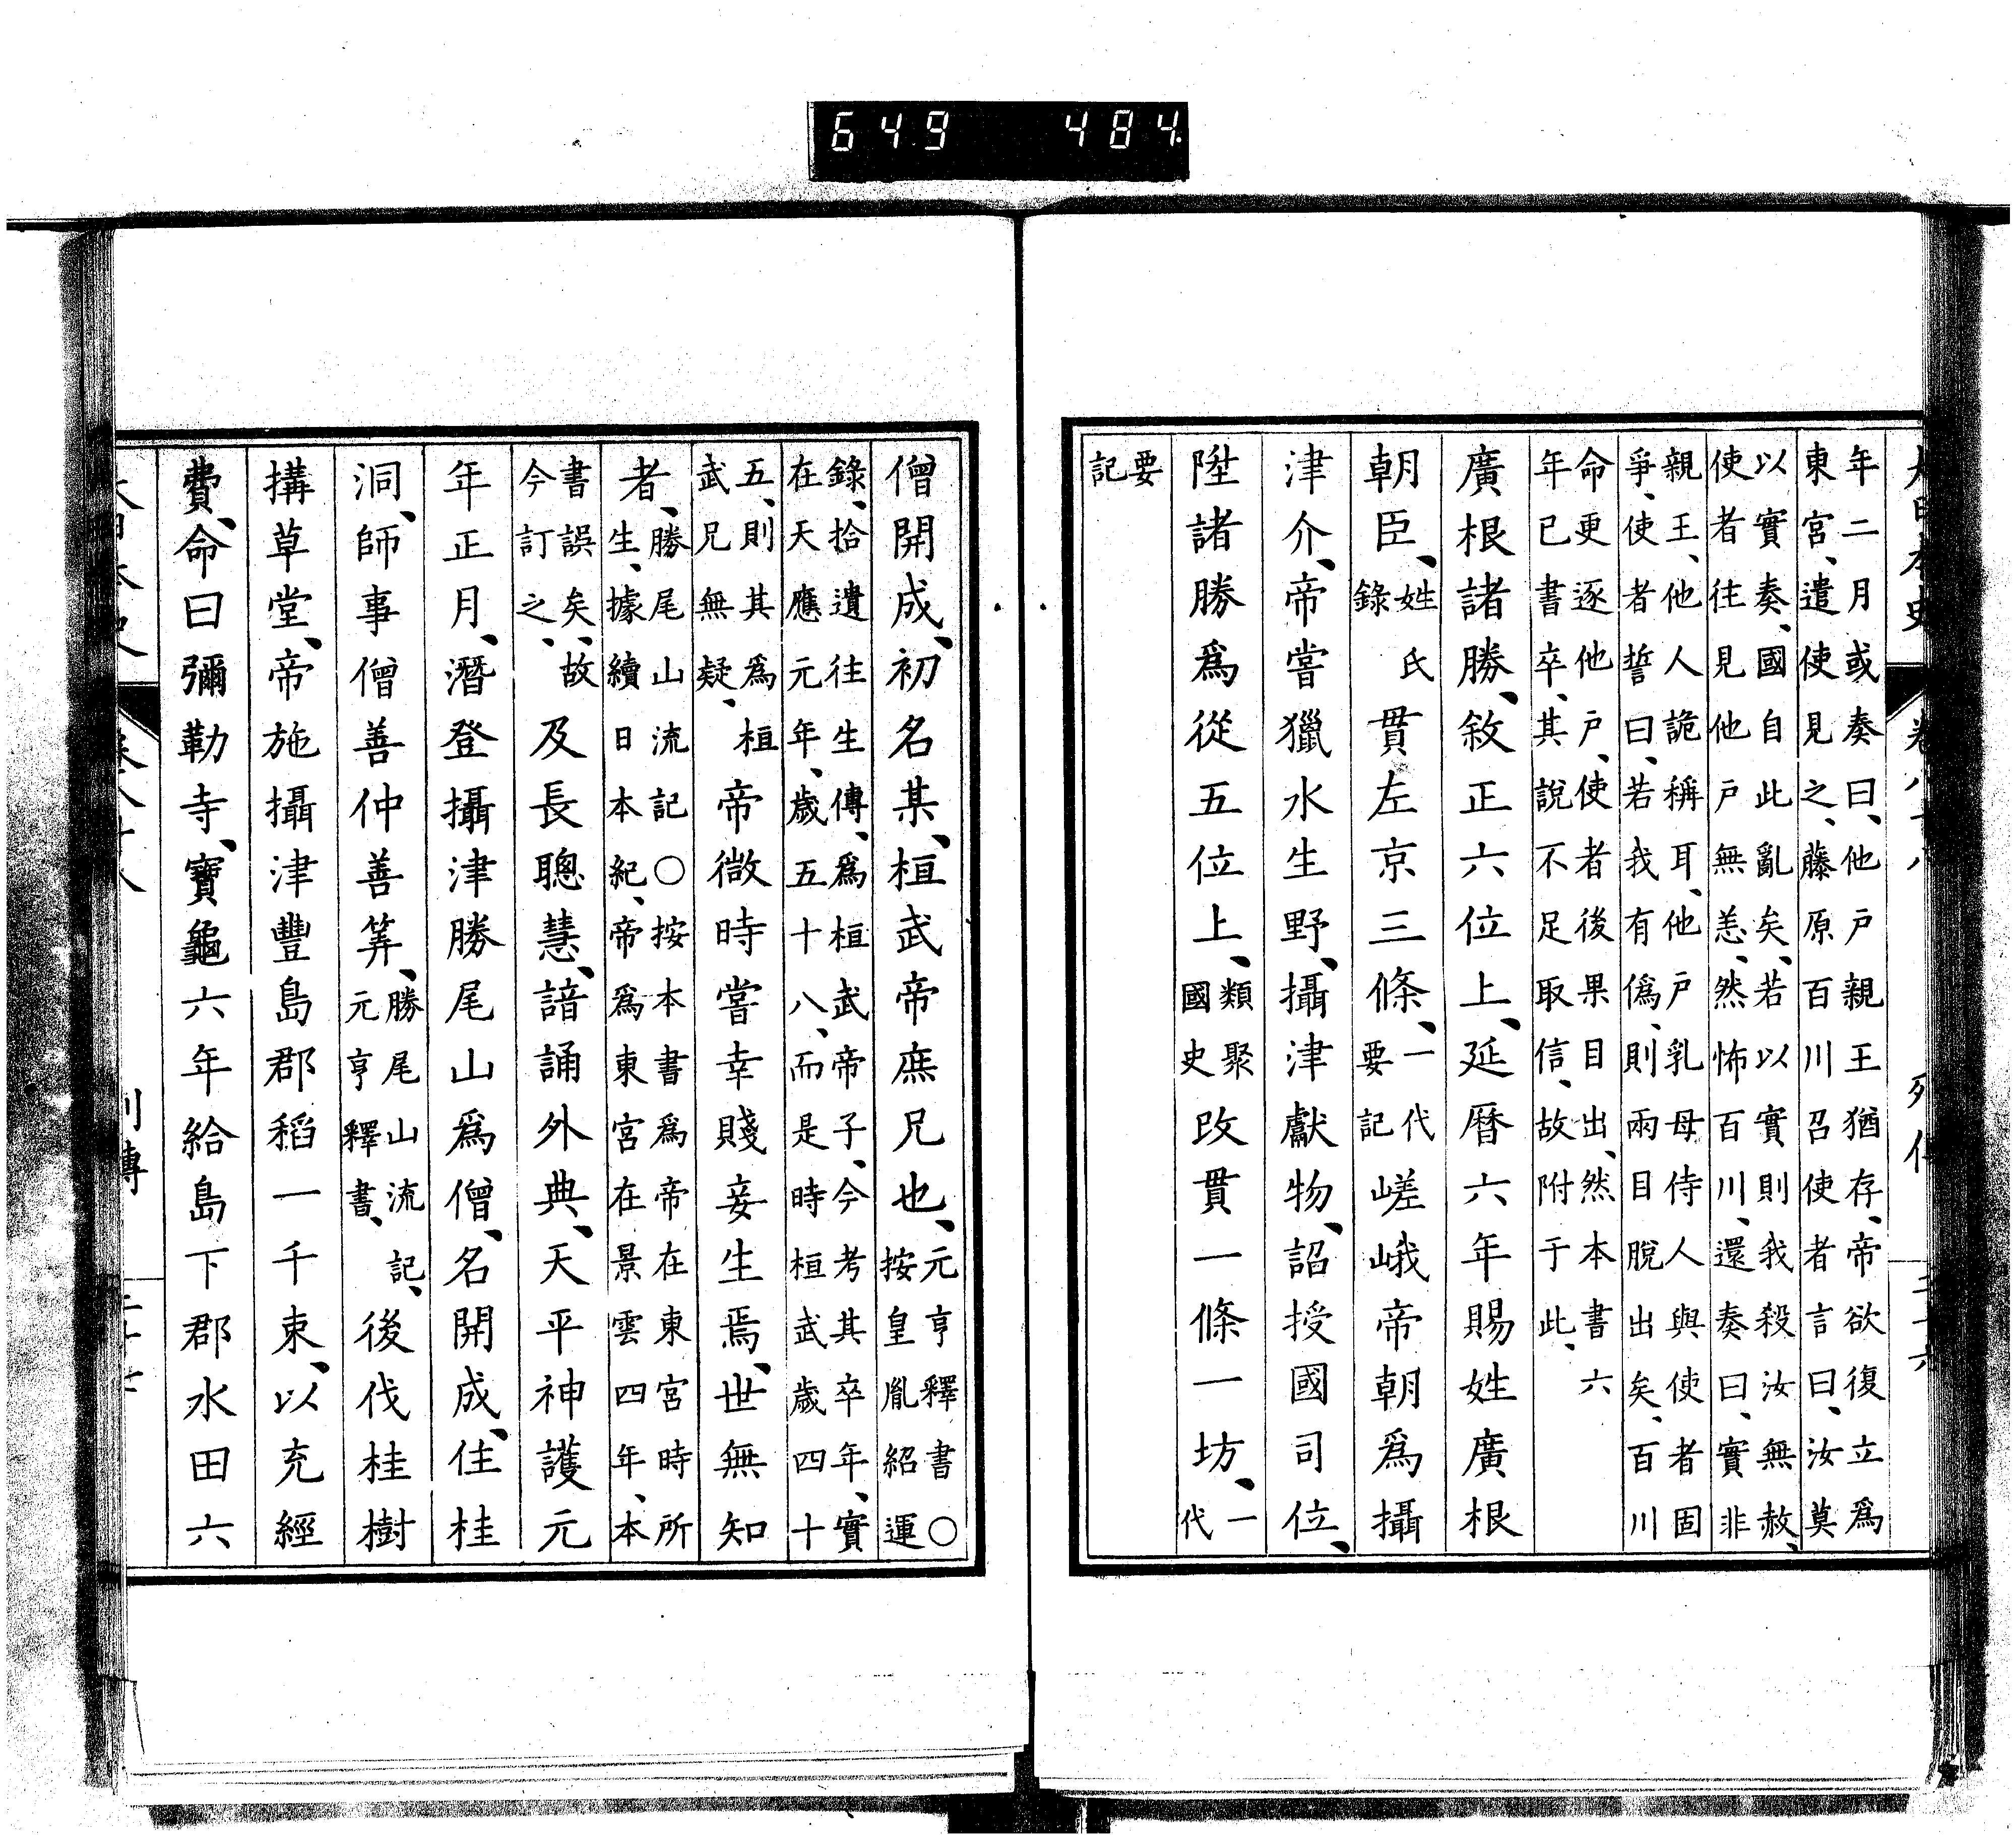 大日本史 卷八十八 列傳 二十六
年二月或奏曰、他戶親王猶存、帝欲復立爲
東宮、遣使見之、藤原百川召使者言曰、汝莫
以實奏、國自此亂矣、若以實則我殺汝無赦、
使者往見他戶無恙、然怖百川、還奏曰、實非
親王、他人詭稱耳、他戶乳母侍人與使者固
爭、使者誓曰、若我有僞、則兩目脫出矣、百川
命更逐他戶、使者後果目出、然本書六
年已書卒、其說不足取信、故附于此、
廣根諸勝、敘正六位上、延曆六年賜姓廣根
朝臣、姓氏錄貫左京三條、一代要記嵯峨帝朝爲攝
津介、帝嘗獵水生野、攝津獻物、詔授國司位、
陞諸勝爲從五位上、類聚國史改貫一條一坊、一代
要記
僧開成、初名某、桓武帝庶兄也、元亨釋書〇按皇胤紹運
錄、拾遺往生傳、爲桓武帝子、今考其卒年、實
在天應元年、歲五十八、而是時桓武歲四十
五、則其爲桓武兄無疑、帝微時嘗幸賤妾生焉、世無知
者、勝尾山流記〇按本書爲帝在東宮時所生、據續日本紀、帝爲東宮在景雲四年、本
書誤矣、故今訂之、及長聰慧、諳誦外典、天平神護元
年正月、潛登攝津勝尾山爲僧、名開成、住桂
洞、師事僧善仲善筭、勝尾山流記、元亨釋書、後伐桂樹
搆草堂、帝施攝津豐島郡稻一千束、以充經
費、命曰彌勒寺、寶龜六年給島下郡水田六
大日本史 卷八十八 列傳 二十七
649 484